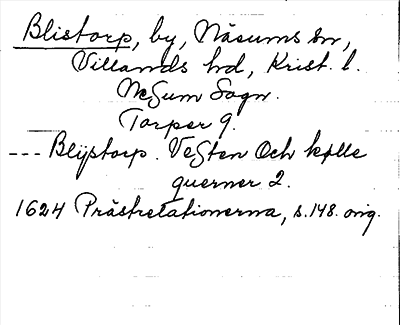 Blistorp, by, Näsums sn,
Villands hd, Krist. l.
Neſum Sogn.
Torper 9.
--- Blijstorp. Veſten Och kølle
querner 2.
1624 Prästrelationerna, s. 148. orig.